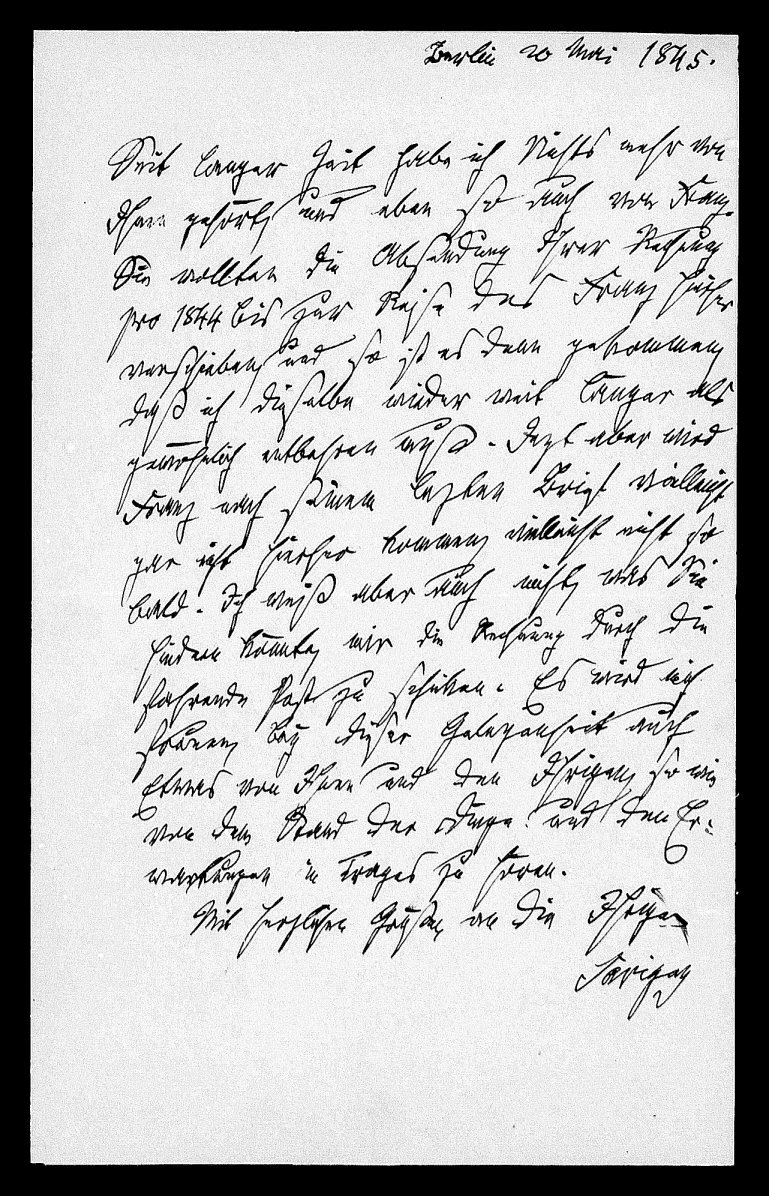 Berlin 20 Mai 1845.
Seit langer Zeit habe ich Nichts mehr von
Ihnen gehört, und eben so auch von Franz.
Sie wollten die Absendung Ihrer Rechnung
pro 1844 bis zur Reise des Franz hieher
verschieben, und so ist es denn gekommen,
daß ich dieselbe wieder weit länger als
gewöhnlich entbehren muß. Jezt aber wird
Franz nach seinem lezten Brief vielleicht
gar nicht hierher kommen, vielleicht nicht so
bald. Ich weiß aber auch nicht, was Sie
hindern könnte, mir die Rechnung durch die
fahrende Post zu schicken. Es wird mich
freuen, bey dieser Gelegenheit auch
Etwas von Ihnen und den Ihrigen, so wie
von dem Stand der Dinge und den Er-
wartungen in Trages zu hören.
Mit herzlichen Grüßen an die Ihrigen
Savigny